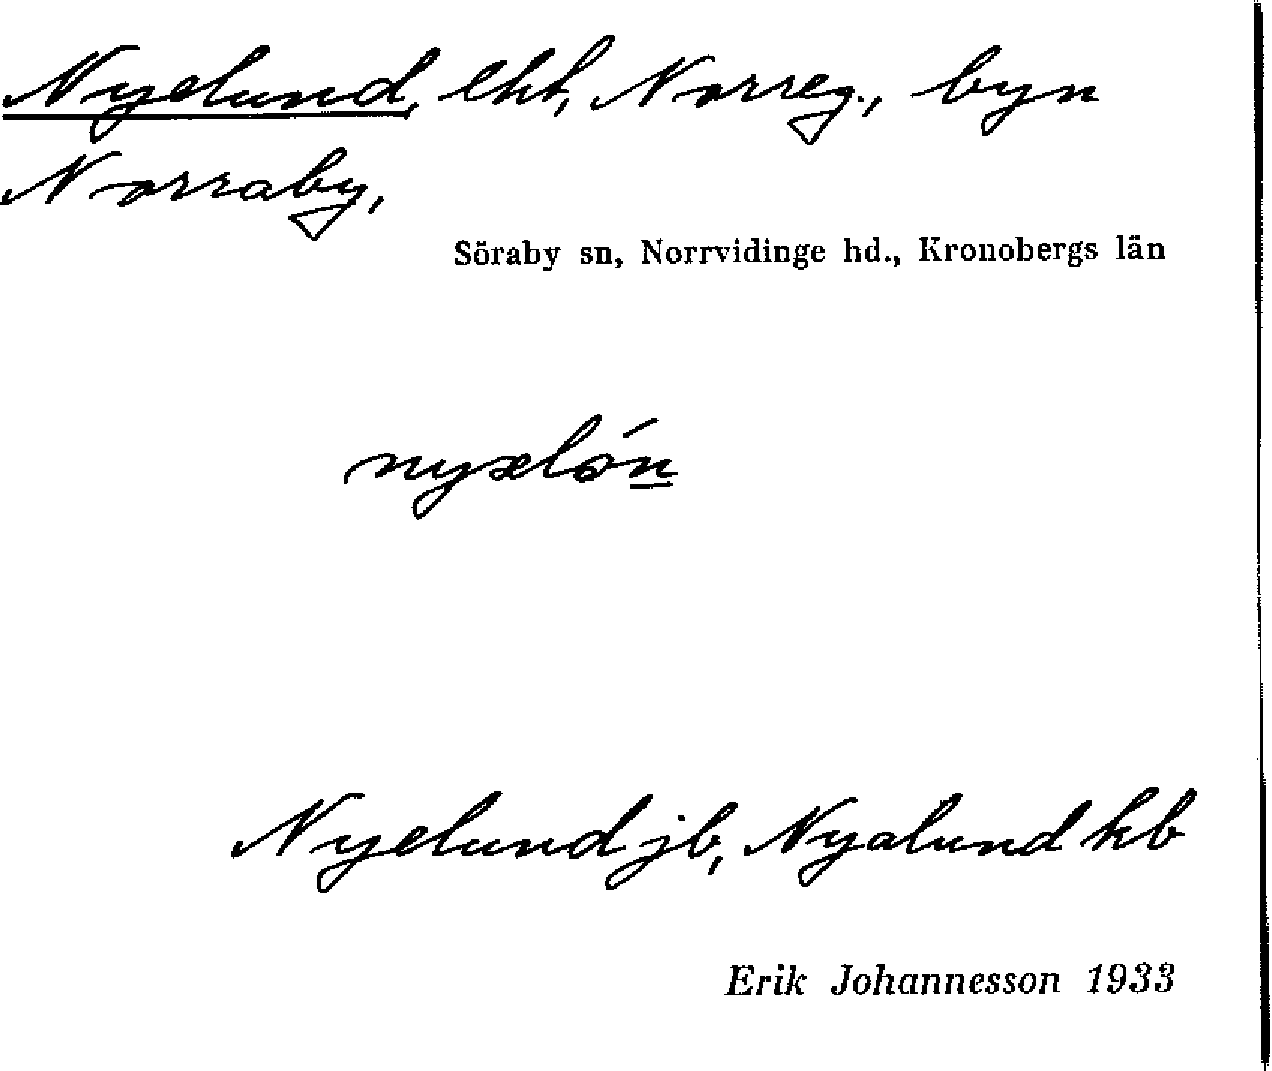 Nyelund, lht, Norreg., byn
Norraby,
Söraby sn, Norrvidinge hd., Kronobergs län
nyælón
Nyelund jb, Nyalund kb
Erik Johannesson 1933